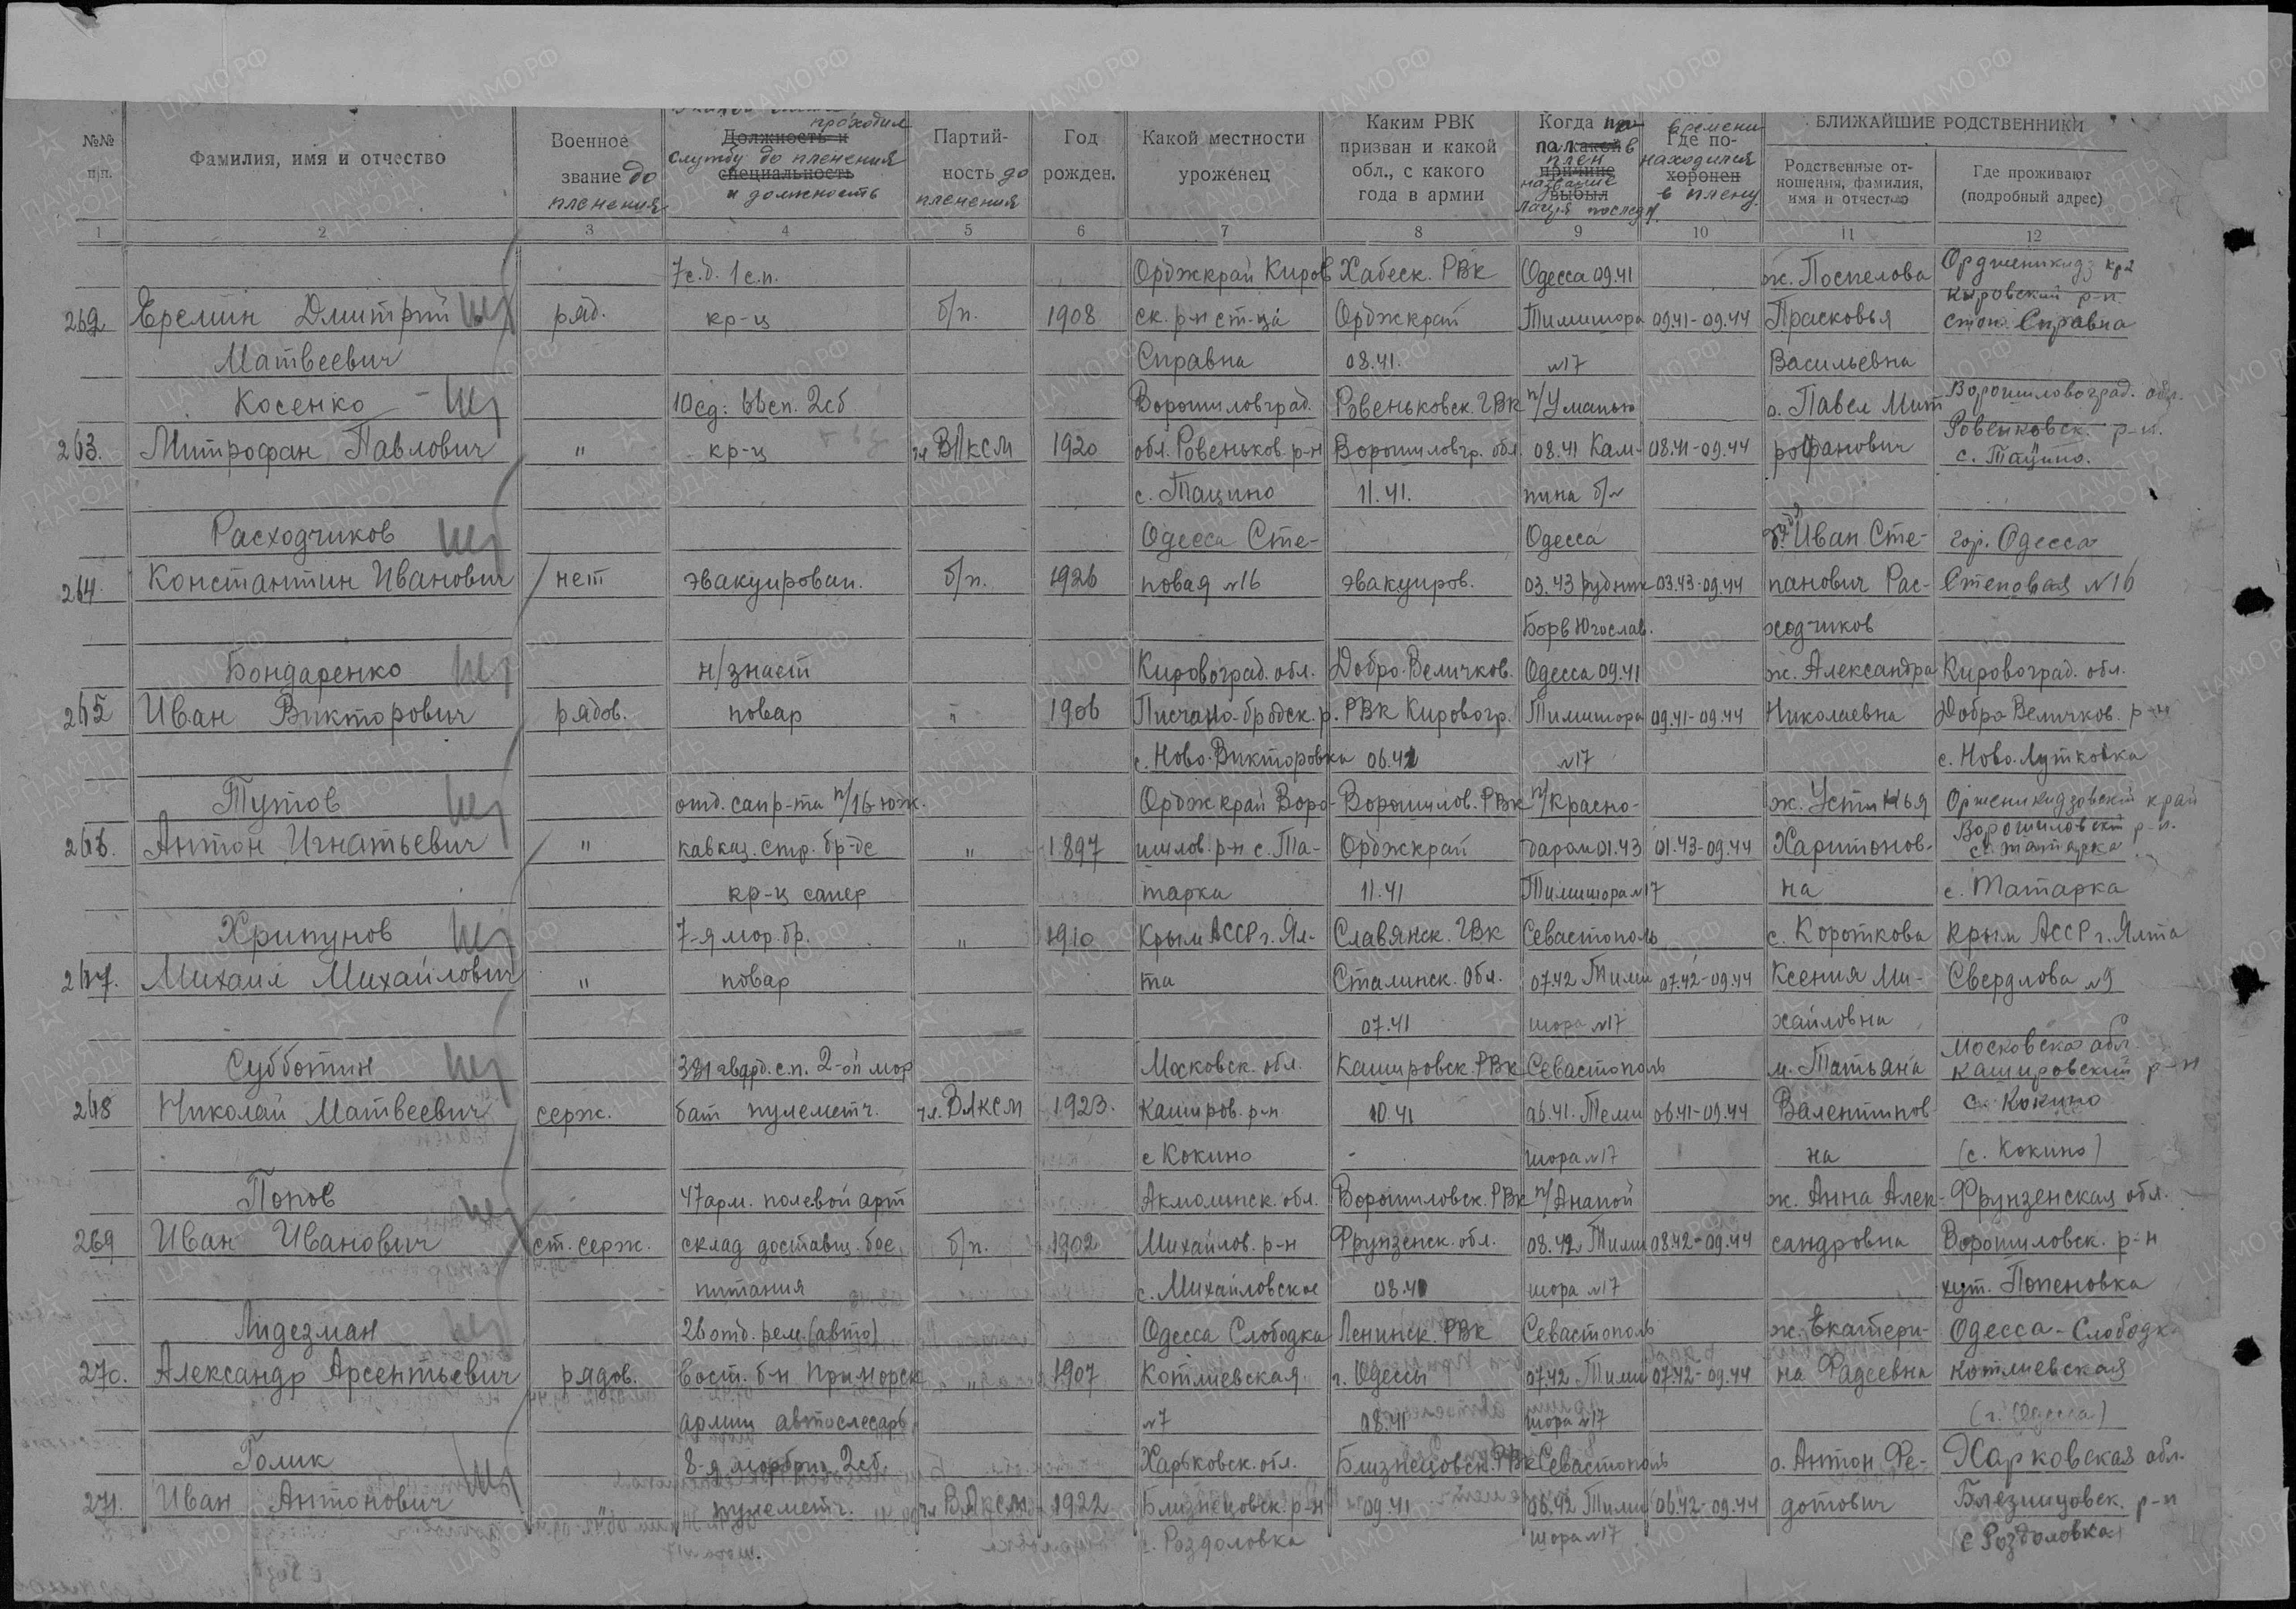 №№ п/п.
Фамилия, имя и отчество
Военное звание до пленения
проходил
Должность и
службу до пленения
специальность
и должность
Партий-
ность до
пленения
Год
рожден.
Какой местности
уроженец
Каким РВК
призван и какой
обл., с какого
года в армии
Когда
плен
причине
название
выбыл
лагря последн.
времени
Где по-
находился
хоронен
в плену
БЛИЖАЙШИЕ РОДСТВЕННИКИ
Родственные от-
ношения, фамилия,
имя и отчество
Где проживают
(подробный адрес)
1 2 3 4 5 6 7 8 9 10 11 12
7 с.д. 1 с.п. Орджкрай Киров Хабеск. РВК Одесса 09.41 ж. Поспелова Орджоникидз кра
262 Еремин Дмитрий ряд. кр-ц б/п. 1908 ск. р-н ст-ца Орджкрай Тимишора 09.41-09.44 Прасковья Кировский р-н. стан. Справна
Матвеевич Справна 08.41. №17 Васильевна
Косенко 10сд. 2сб Ворошиловград. Ровеньковск. ГВК п/Уманью о. Павел Мит Ворошиловоград. обл.
263. Митрофан Павлович " кр-ц чл ВЛКСМ 1920 обл. Ровеньков. р-н Ворошиловгр. обл. 08.41 Кам- 08.41-09.44 рофанович Ровенковск. р-н. с. Тацино.
с. Тацино 11.41. пина б/н
Расходчиков Одесса Сте- Одесса Иван Сте- гор. Одесса
264. Константин Иванович нет эвакуирован. б/п. 1926 повая №16 эвакуиров. 03.43 рудник 03.43-09.44 панович Рас- Степовая №16
Борв Югослав. ходчиков
Бондаренко н/знает Кировоград. обл. Добро-Величков. Одесса 09.41 ж. Александра Кировоград. обл.
265 Иван Викторович рядов. повар " 1906 Писчано-бродск. р. РВК Кировогр. Тимишора 09.41-09.44 Николаевна Добро Величков. р-н
с. Ново-Викторовка 06.41 №17 с. Ново-Лутковка
Тутов отд. сапр-та п/16 юж. Орджкрай Воро- Ворошилов. РВК п/Красно- ж. Устинья Орженикидзовский край
266. Антон Игнатьевич " кавказ. стр. бр-де " 1897 шилов. р-н с. Та- Орджкрай даром 01.43 01.43-09.44 Харитонов- Ворошиловский р-н. с. Татарка
кр-ц сапер тарка 11.41 Тимишора №17 на с. Татарка
Хрипунов 7-я мор. бр. " 1910 Крым АССР г. Ял- Славянск. ГВК Севастополь с. Короткова Крым АССР г. Ялта
267. Михаил Михайлович " повар та Сталинск. обл. 07.42 Тими 07.42-09.44 Ксения Ми- Свердлова №9
07.41 шора №17 хайловна
Субботин 381 гвард. с.п. 2-ой мор Московск. обл. Кашировск. РВК Севастополь м. Татьяна Московская обл. Кашировский р-н
268 Николай Матвеевич серж. бат пулеметч. чл. ВЛКСМ 1923. Каширов. р-н 10.41 06.41. Теми 06.41-09.44 Валентинов с. Кокино
с Кокино шора №17 на (с. Кокино)
Попов 47 арм. полевой арт Акмолинск. обл. Ворошиловск. РВК п/Анапой ж. Анна Алек- Фрунзенская обл.
269 Иван Иванович ст. серж. склад доставщ. бое б/п. 1902 Михайлов. р-н Фрунзенск. обл. 08.42 Тими 08.42-09.44 сандровна Ворошиловск. р-н
питания с. Михайловское 08.41 шора №17 хут. Попеновка
Лидезман 26 отд. рем. (авто) Одесса Слободка Ленинск. РВК Севастополь ж. Екатери- Одесса-Слободк
270. Александр Арсентьевич рядов. вост. б-н приморск " 1907 Котлиевская г. Одессы 07.42 Тими 07.42-09.44 на Фадеевна Котлиевская
армии автослесарь №7 08.41 шора №17 (г. Одесса)
Голик 8-я морбриг. 2сб. Харьковск. обл. Близнецовск. РВК Севастополь о. Антон Фе- Харковская обл.
271. Иван Антонович пулеметч. чл ВЛКСМ 1922 Близнецовск. р-н 09.41 06.42 Тими 06.42-09.44 дотович Близницовск. р-н
с. Роздоловка шора №17 с Роздоловка